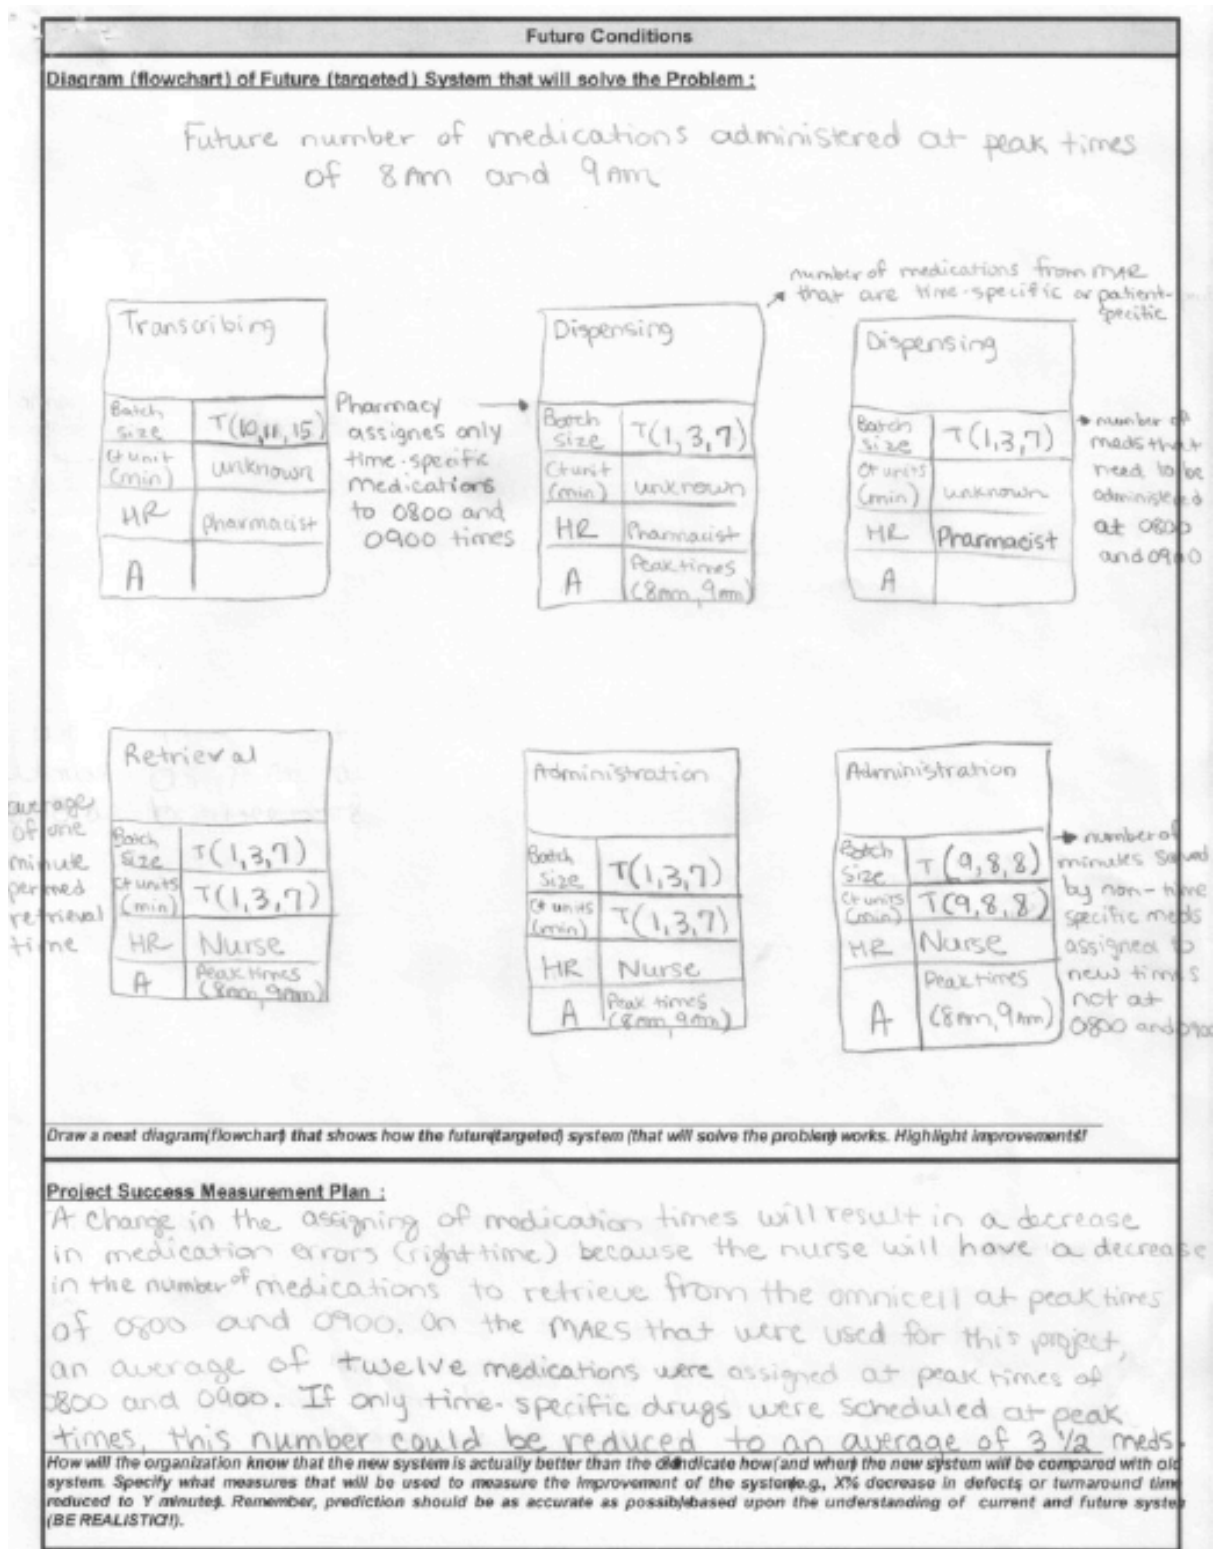 Future Conditions
Diagram (flowchart) of Future (targeted) System that will solve the Problem :
Future number of medications administered at peak times
of 8Am and 9Am
number of medications from MAR
that are time-specific or patient-
specific
Transcribing
Batch size T(10,11,15)
Ct unit (min) unknown
HR pharmacist
A
Pharmacy
assignes only
time-specific
medications
to 0800 and
0900 times
Dispensing
Batch size T(1,3,7)
Ct unit (min) unknown
HR Pharmacist
A Peak times (8am, 9am)
Dispensing
Batch size T(1,3,7)
Ct units (min) unknown
HR Pharmacist
A
number of
meds that
need to be
administered
at 0800
and 0900
average
of one
minute
per med
retrieval
time
Retrieval
Batch Size T(1,3,7)
Ct units (min) T(1,3,7)
HR Nurse
A Peak times (8am, 9am)
Administration
Batch Size T(1,3,7)
Ct units (min) T(1,3,7)
HR Nurse
A Peak times (8am, 9am)
Administration
Batch Size T(9,8,8)
Ct units (min) T(9,8,8)
HR Nurse
A Peak times (8am, 9Am)
number of
minutes saved
by non-time
specific meds
assigned to
new times
not at
0800 and 0900
Draw a neat diagram(flowchart) that shows how the future(targeted) system (that will solve the problem) works. Highlight improvements!
Project Success Measurement Plan :
A Change in the assigning of medication times will result in a decrease
in medication errors (right time) because the nurse will have a decrease
in the number of medications to retrieve from the omnicell at peak times
of 0800 and 0900. On the MARS that were used for this project,
an average of twelve medications were assigned at peak times of
0800 and 0900. If only time-specific drugs were scheduled at peak
times, this number could be reduced to an average of 3 1/2 meds.
How will the organization know that the new system is actually better than the old indicate how(and when) the new system will be compared with old
system. Specify what measures that will be used to measure the improvement of the system e.g., X% decrease in defects or turnaround time
reduced to Y minutes). Remember, prediction should be as accurate as possible based upon the understanding of current and future system
(BE REALISTIC!!).